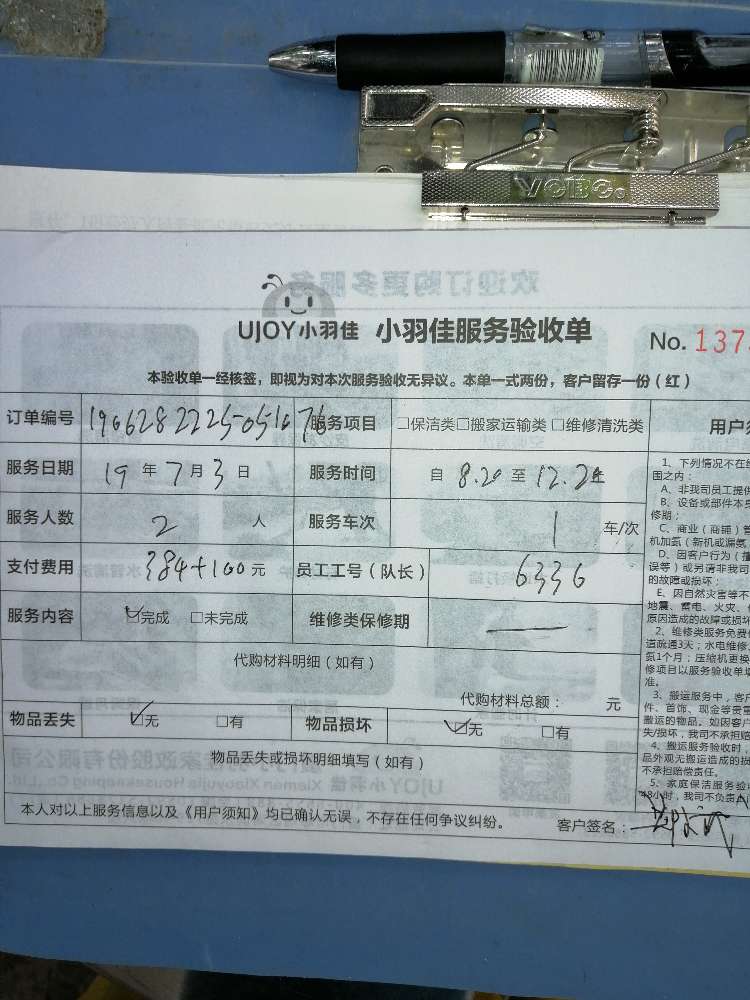 VOBO
UJOY小羽佳 小羽佳服务验收单
No. 137
本验收单一经核签，即视为对本次服务验收无异议。本单一式两份，客户留存一份（红）
订单编号 190628222505167 服务项目 □保洁类□搬家运输类□维修清洗类
用户须
服务日期 19 年 7 月 3 日 服务时间 自 8.20 至 12.20
服务人数 2 人 服务车次 1 车/次
支付费用 384+100 元 员工工号（队长） 6336
服务内容 ☑完成 □未完成 维修类保修期 —
代购材料明细（如有）
代购材料总额： 元
物品丢失 ☑无 □有 物品损坏 ☑无 □有
物品丢失或损坏明细填写（如有）
本人对以上服务信息以及《用户须知》均已确认无误，不存在任何争议纠纷。 客户签名：
1、下列情况不在
围之内：
A、非我司员工提
B、设备或部件本
修期；
C、商业（商铺）
机加氨（新机或漏氨
D、因客户行为（
误等）或另请非我司
的故障或损坏；
E、因自然灾害等不
地震、蓄电、火灾、
原因造成的故障或损坏
2、维修类服务免费
道疏通3天；水电维修
氨1个月；压缩机更换
修项目以服务验收单
准。
3、搬运服务中，客户
件、首饰、现金等贵重
搬运的物品。如因客户
失/损坏，我司不承担赔
4、搬运服务验收时，
品外观无搬运造成的损
不承担赔偿责任。
5、家庭保洁服务验收
48小时，我司不负责